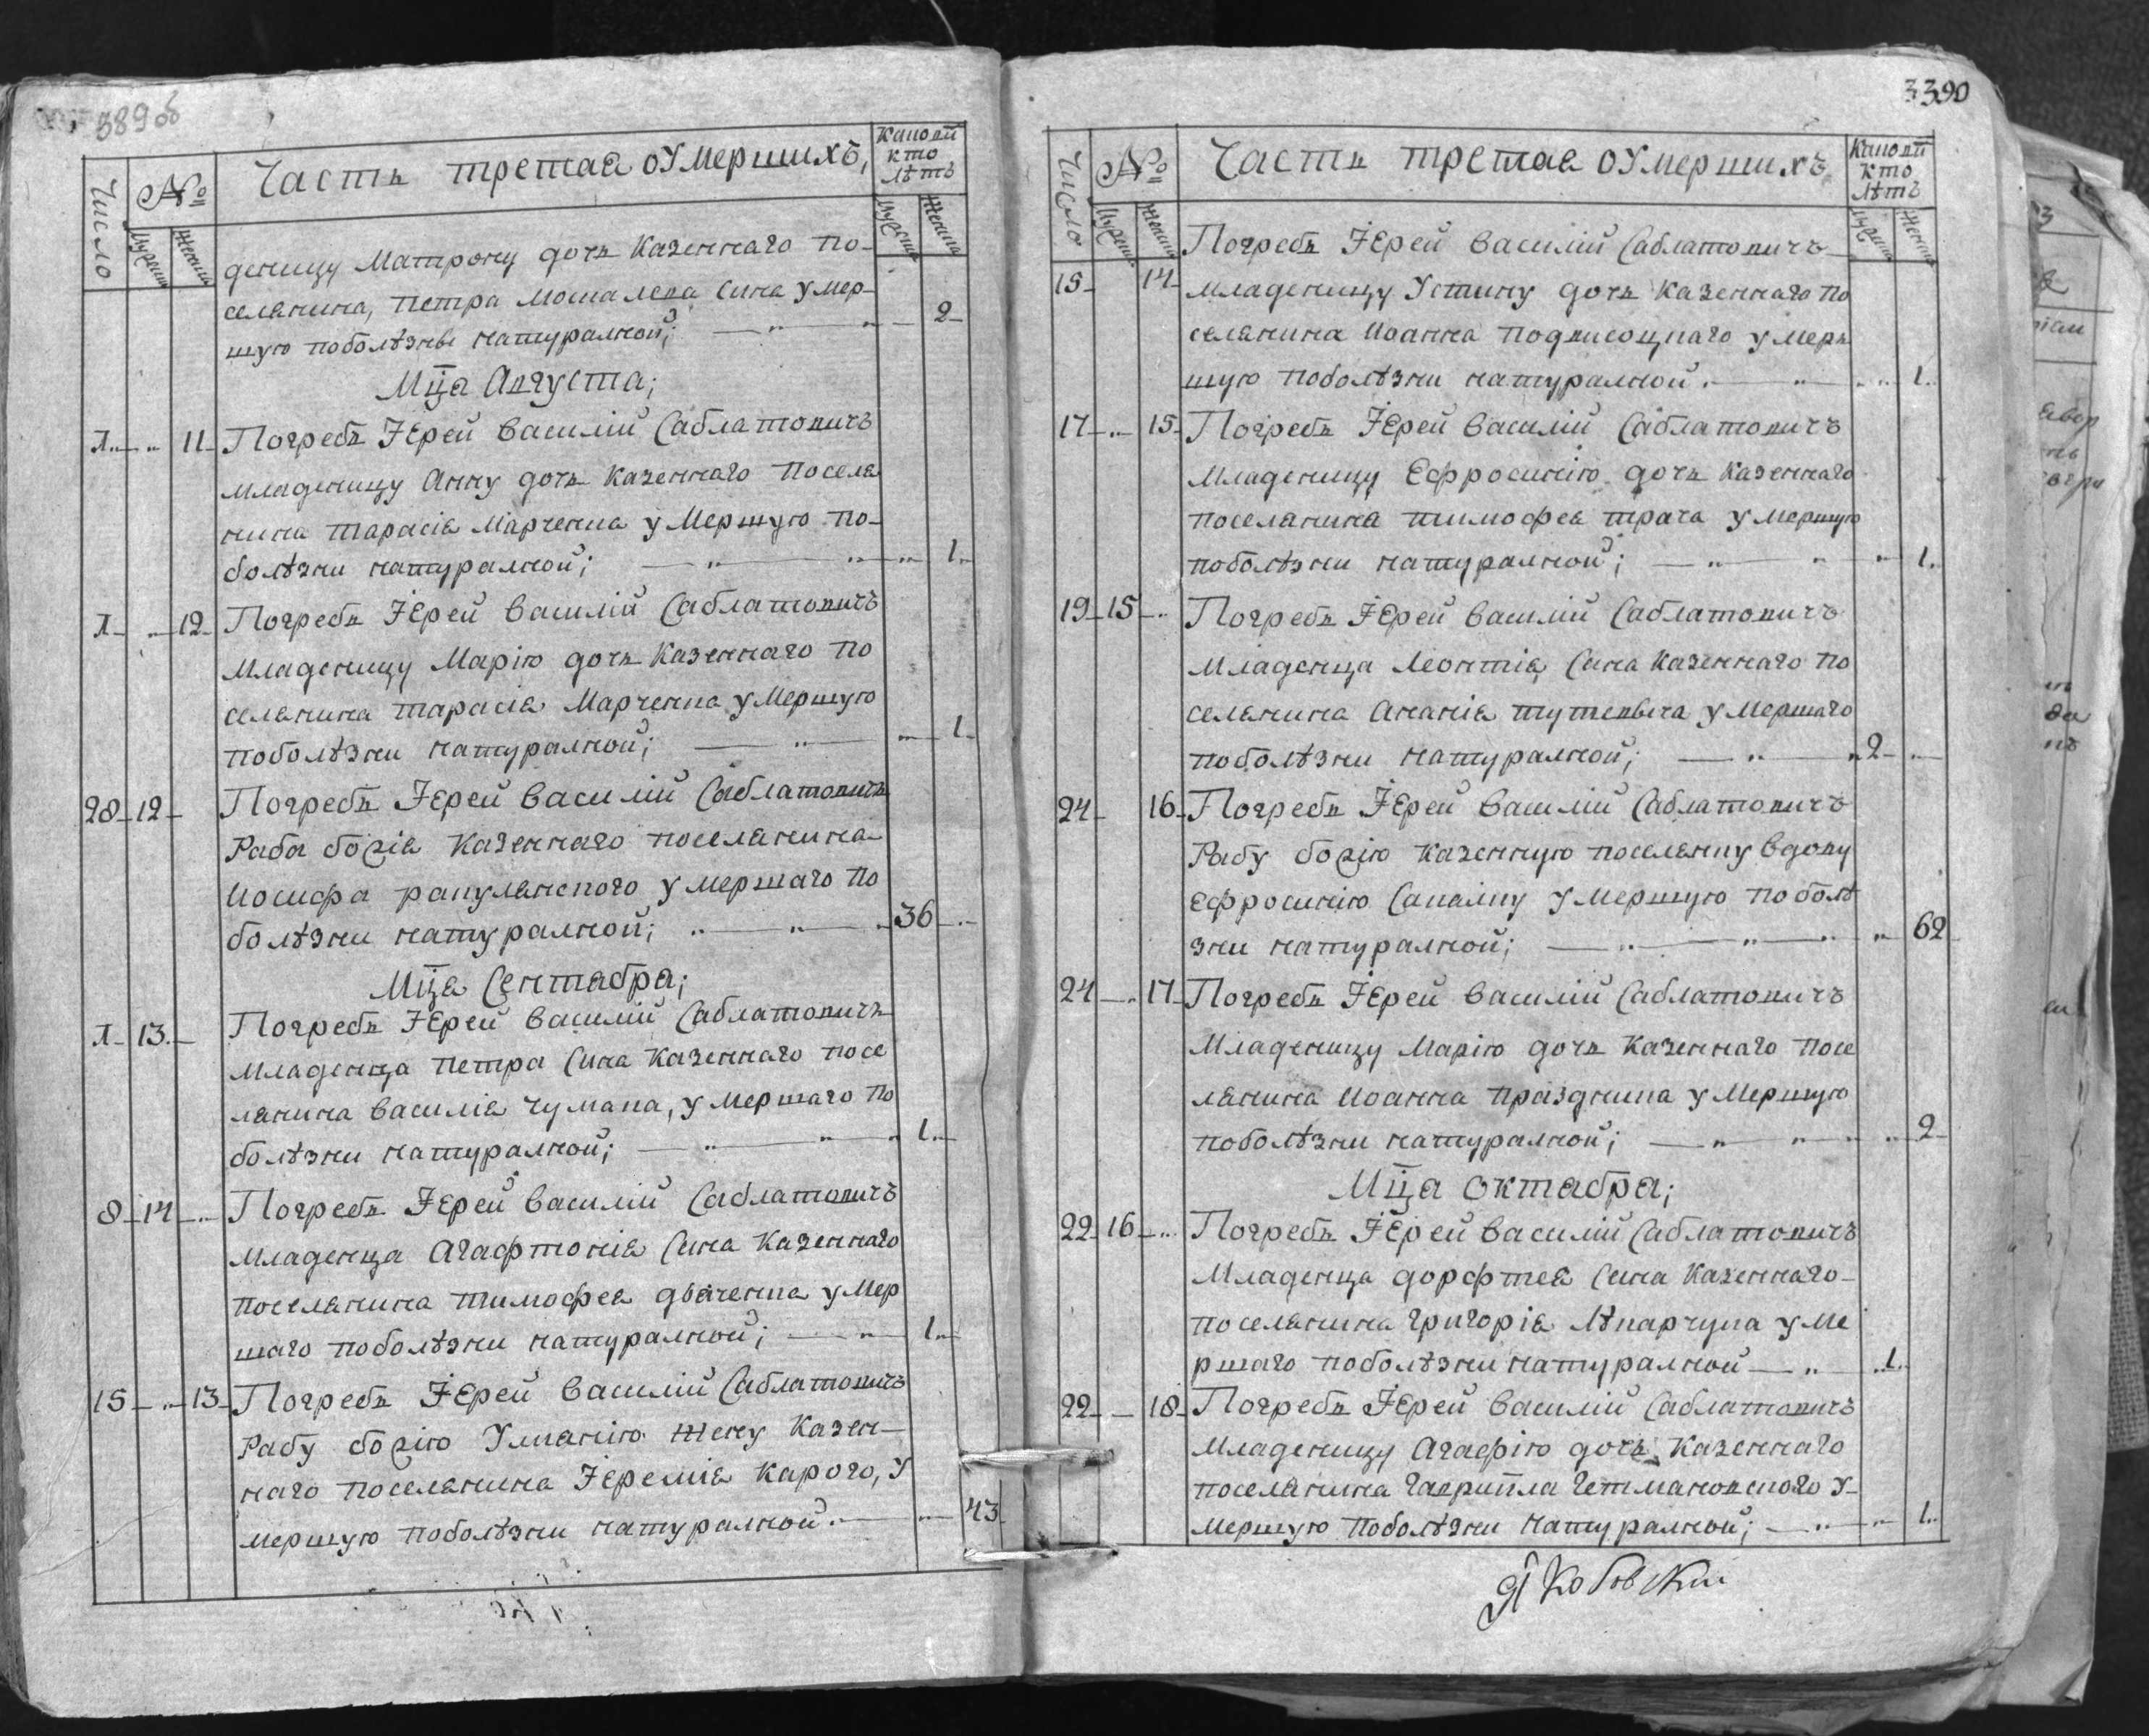 389об
Часть третая оумершихъ,
Каковй
кто
лѣтъ
Число
№
Мужеска
Женска
Мужеска
Женска
деницу Матрону дочь казеннаго по-
селянина, петра мошалева сина умер-
шую поболѣзнѣ натуралной; 2
Мц̃а Августа;
1 11 Погребъ Іерей василій Саблатовичъ
младеницу Анну дочь казеннаго посела
нина тарасія Марченка умершую по-
болѣзни натуралной; 1
1 12 Погребъ Іерей василій Саблатовичъ
младеницу Марію дочь казеннаго по
селянина тарасія Марченка умершую
поболѣзни натуралной; 1
28 12 Погребъ Іерей василій Саблатовичъ
Раба божія казеннаго поселянина
Иосифа ракулянского умершаго по
болѣзни натуралной; 36
Мц̃а Сентабра;
1 13 Погребъ Іерей василій Саблатовичъ
младенца петра сина казеннаго посе
лянина василія чумака, умершаго по
болѣзни натуралной; 1
8 14 Погребъ Іерей василій Саблатовичъ
младенца Агафтонія сина казеннаго
поселянина тимофея дяченка умер
шаго поболѣзни натуралной; 1
15 13 Погребъ Іерей василій Саблатовичъ
Рабу божію Улианію жену казен-
наго поселянина Іеремія карого, у
мершую поболѣзни натуралной. 43
3390
Часть третая оумершихъ
Каковй
кто
лѣтъ
Число
№
Мужеска
Женска
Мужеска
Женска
Погребъ Іерей василій Саблатовичъ
15 14 младеницу Устину дочь казеннаго по
селянина Иоанна подвисоцкаго умерь
шую поболѣзни натуралной. 1
17 15 Погребъ Іерей василій Саблатовичъ
младеницу Ефросинію дочь казеннаго
поселянина тимофея трача умершую
поболѣзни натуралной; 1
19 15 Погребъ Іерей василій Саблатовичъ
младенца Леонтія, сина казеннаго по
селянина Ананія тутевича умершаго
поболѣзни натуралной; 2
24 16 Погребъ Іерей василій Саблатовичъ
Рабу божію казенную поселянку вдову
Ефросинію Сакалку умершую поболѣ
зни натуралной; 62
24 17 Погребъ Іерей василій Саблатовичъ
младеницу Марію дочь казеннаго посе
лянина Иоанна праздника умершую
поболѣзни натуралной; 2
Мц̃а октабра;
22 16 Погребъ Іерей василій Саблатовичъ
младенца дорофтея сина казеннаго
поселянина григорія лѣкарчука уме
ршаго поболѣзни натуралной 1
22 18 Погребъ Іерей василій Саблатовичъ
младеницу Агафію дочь казеннаго
поселянина гавриила гетмановского у-
мершую поболѣзни натуралной; 1